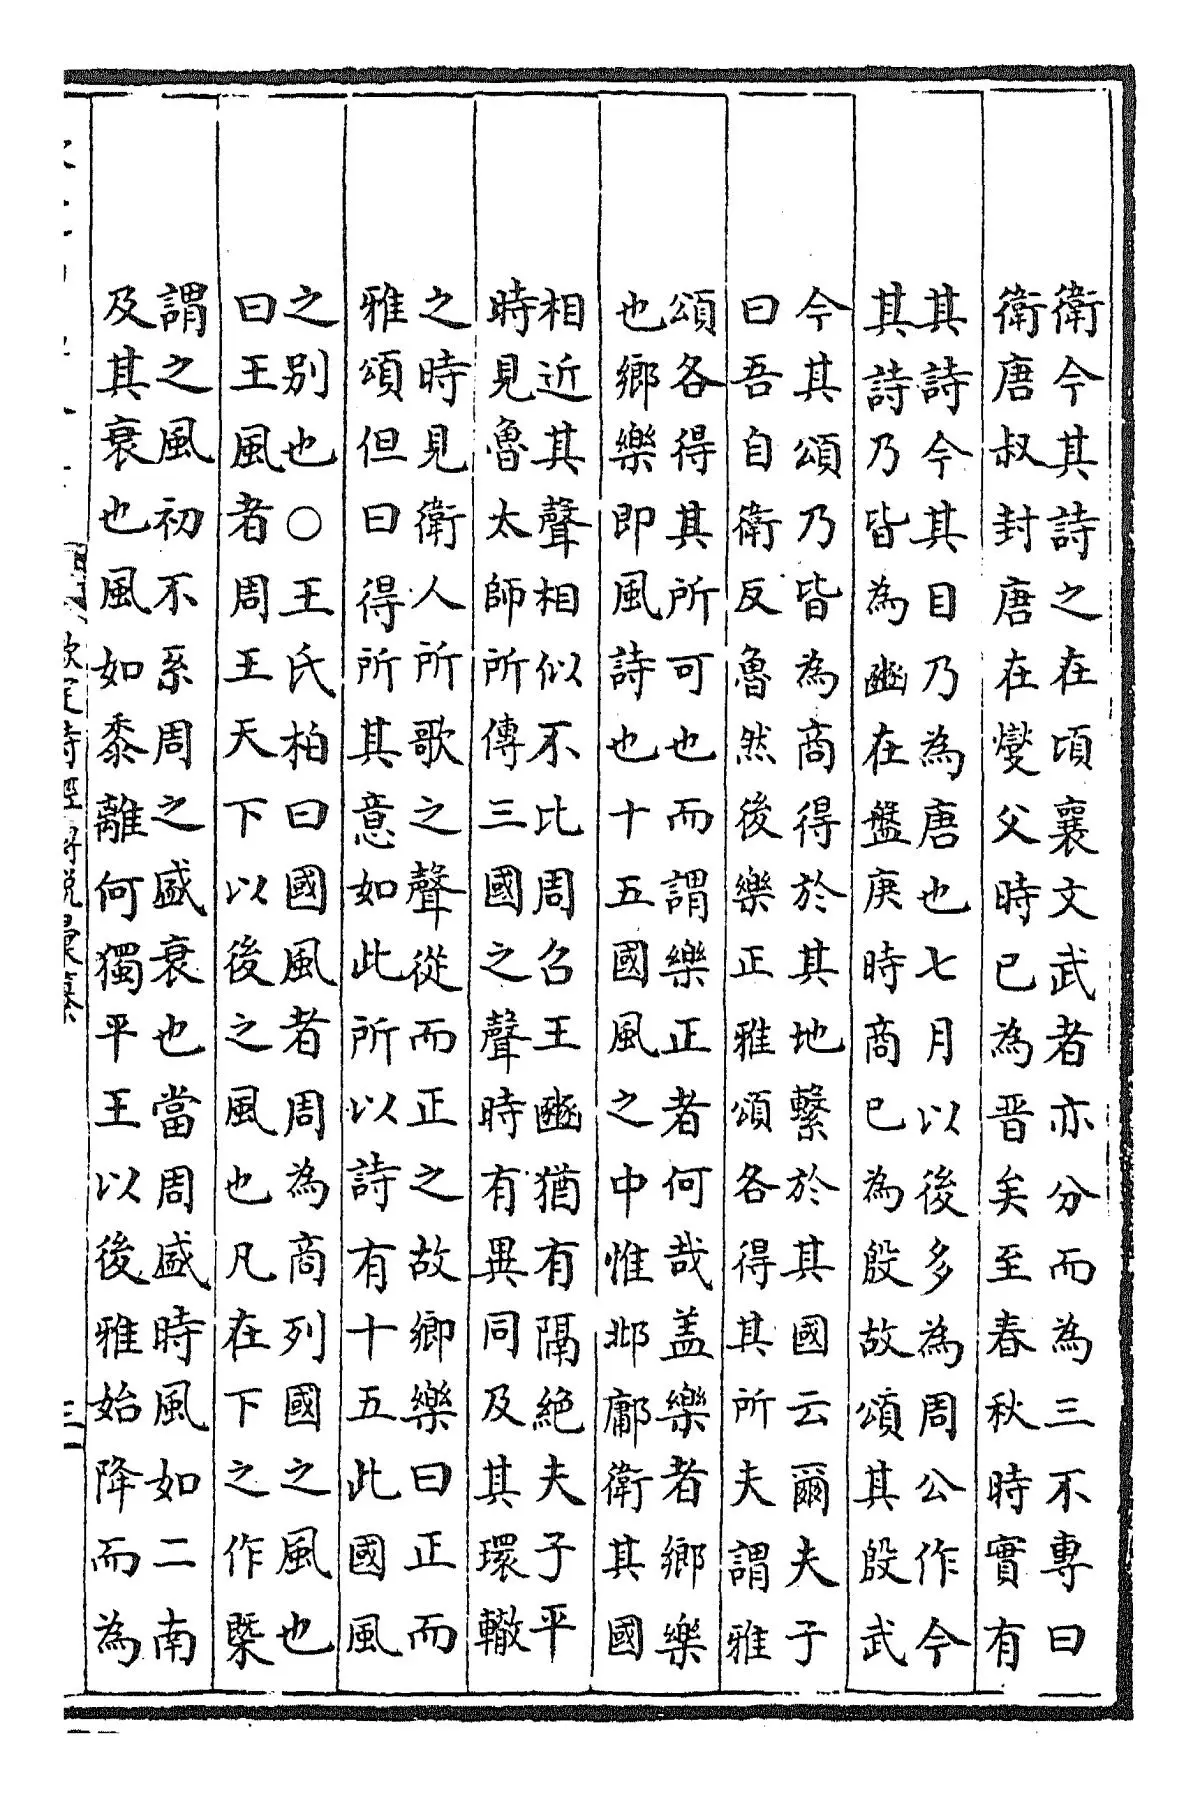 衛今其詩之在頃襄文武者亦分而為三不專曰
衛唐叔封唐在燮父時已為晋矣至春秋時實有
其詩今其目乃為唐也七月以後多為周公作今
其詩乃皆為豳在盤庚時商已為殷故頌其殷武
今其頌乃皆為商得於其地繫於其國云爾夫子
曰吾自衛反魯然後樂正雅頌各得其所夫謂雅
頌各得其所可也而謂樂正者何哉盖樂者鄉樂
也鄉樂即風詩也十五國風之中惟邶鄘衛其國
相近其聲相似不比周召王豳猶有隔絶夫子平
時見魯太師所傳三國之聲時有異同及其環轍
之時見衛人所歌之聲從而正之故鄉樂曰正而
雅頌但曰得所其意如此所以詩有十五此國風
之别也○王氏柏曰國風者周為商列國之風也
曰王風者周王天下以後之風也凡在下之作槩
謂之風初不系周之盛衰也當周盛時風如二南
及其衰也風如黍離何獨平王以後雅始降而為
欽定詩經傳説彙纂
三